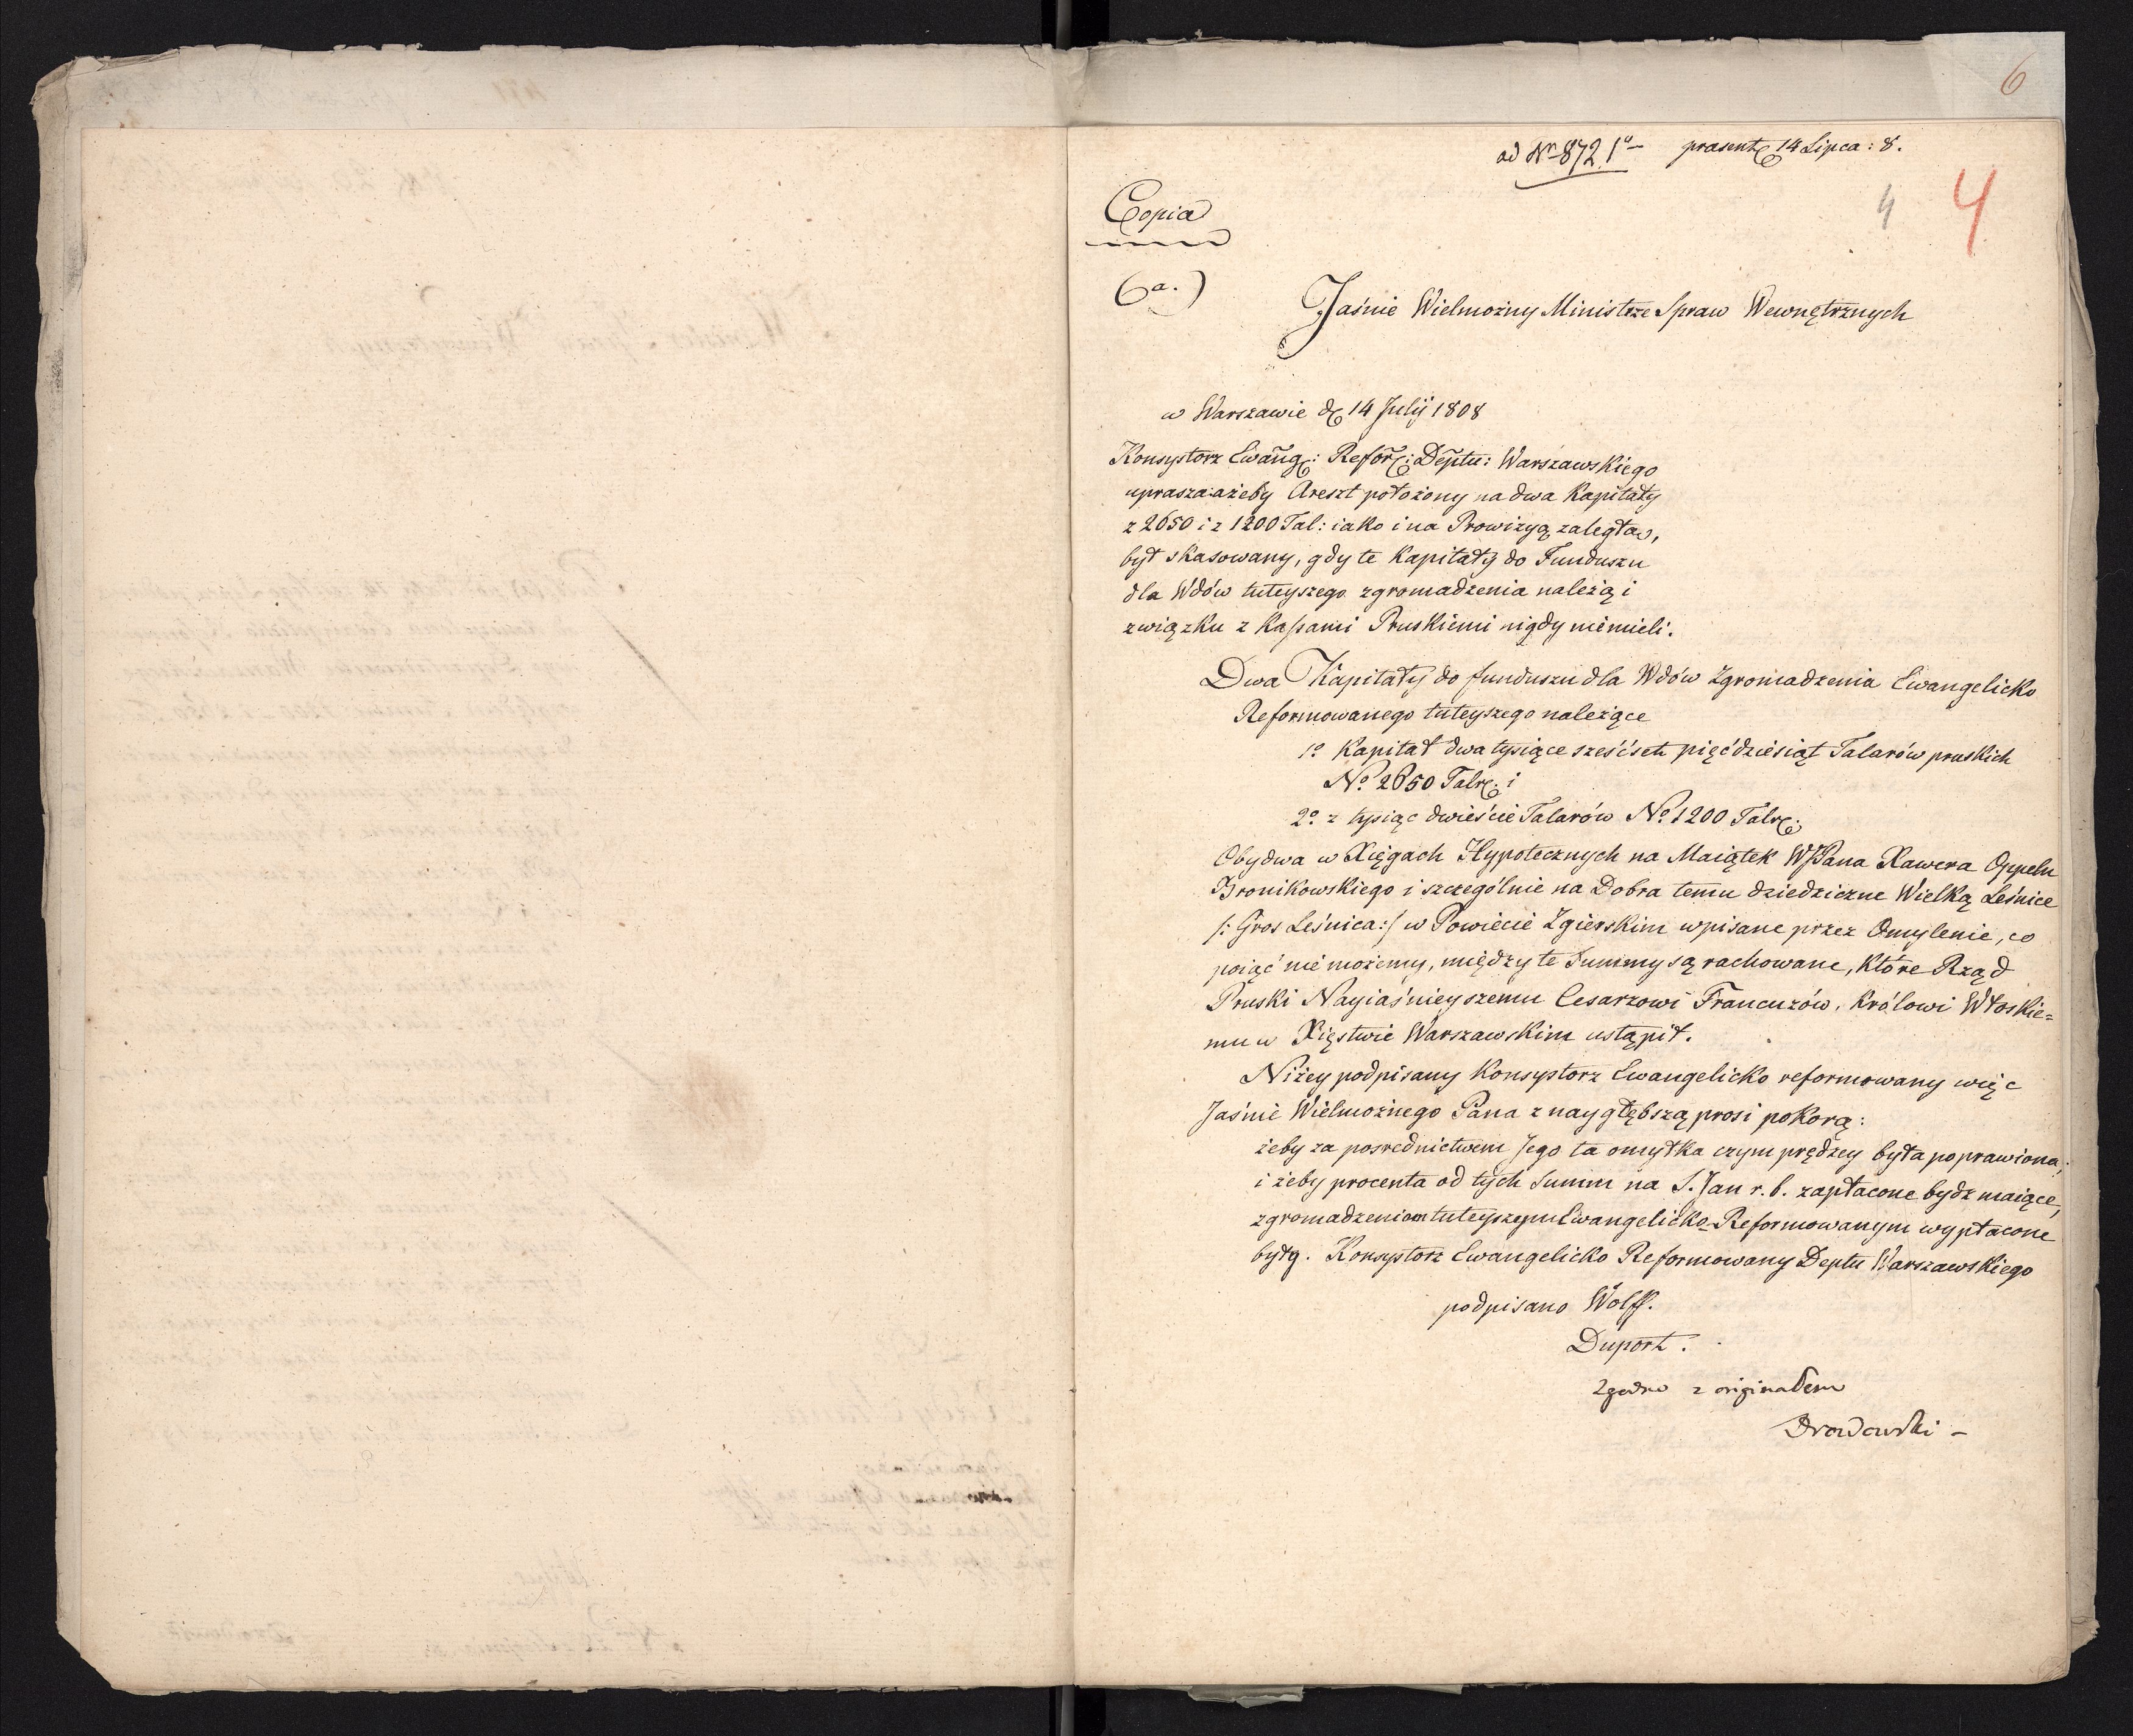 6
ad Nr 872 1o praesent 14 Lipca : 8.
4 4
Copia
6a.)
Jaśnie Wielmożny Ministrze Spraw Wewnętrznych
w Warszawie d. 14 Julij 1808
Konsystorz Ewang: Refor: Deptu: Warszawskiego
uprasza: ażeby Areszt położony na dwa Kapitały
z 2650 i z 1200 Tal: iako i na Prowizyą zaległa,
był skasowany, gdy te Kapitały do Funduszu
dla Wdów tuteyszego zgromadzenia należą i
związku z Kassami Pruskiemi nigdy niemieli.
Dwa Kapitały do funduszu dla Wdów Zgromadzenia Ewangelicko
Reformowanego tuteyszego należące
1o Kapitał dwa tysiące sześćset pięćdziesiąt Talarów pruskich
No 2650 Talr: i
2o z tysiąc dwieście Talarów No 1200 Talr:
Obydwa w Xięgach Hypotecznych na Maiątek WJPana Xawera Oppeln
Bronikowskiego i szczególnie na Dobra temu dziedziczne Wielką Leśnice
/: Gros Leśnica :/ w Powiecie Zgierskim wpisane przez Omylenie, co
poiąć nie możemy, między te Summy są rachowane, które Rząd
Pruski Nayiaśnieyszemu Cesarzowi Francuzów, Królowi Włoskie=
mu w Xięstwie Warszawskim ustąpił.
Niżey podpisany Konsystorz Ewangelicko reformowany więc
Jaśnie Wielmożnego Pana z naygłębszą prosi pokorą:
żeby za posrednictwem Jego ta omyłka czym prędzey była poprawiona;
i żeby procenta od tych Summ na S. Jan r. b. zapłacone bydz maiące,
zgromadzeniom tuteyszemu Ewangelicko-Reformowanym wypłacone
były. Konsystorz Ewangelicko Reformowany Deptu Warszawskiego
podpisano Wolff.
Duport.
Zgodno z originałem